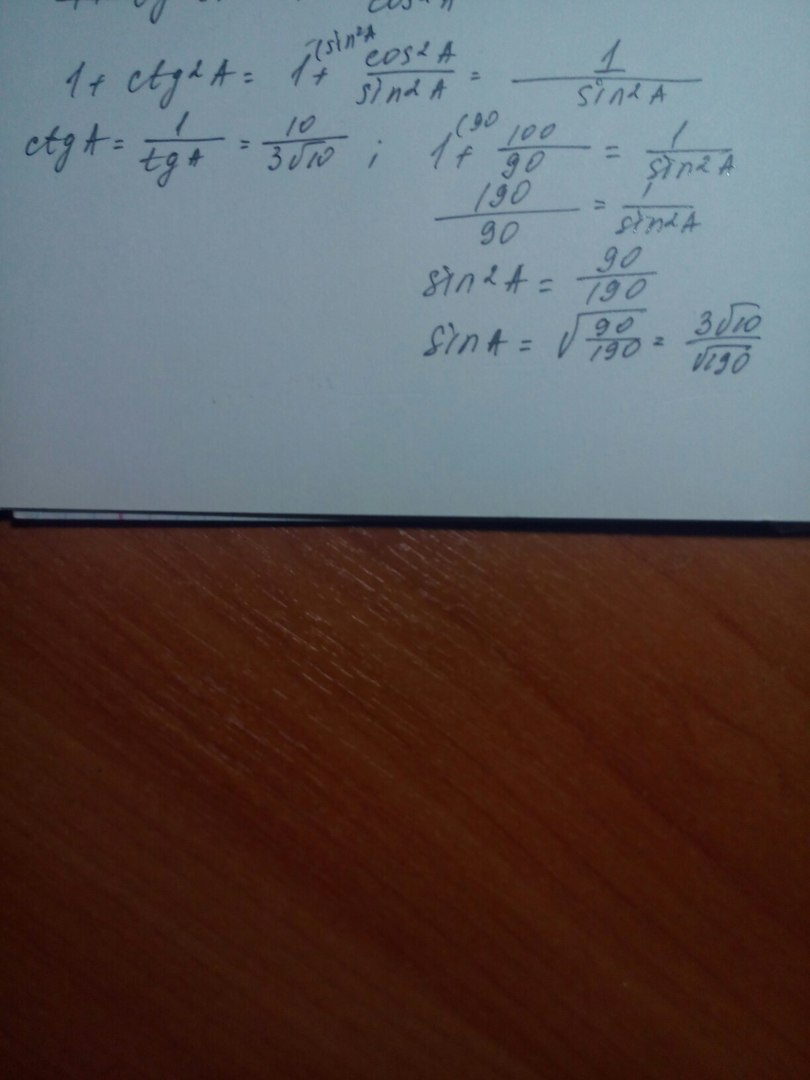 1 + ctg²A = 1 + (sin²A cos²A / sin²A = 1 / sin²A
ctgA = 1 / tgA = 10 / 3√10 ; 1 + (90 100 / 90 = 1 / sin²A
190 / 90 = 1 / sin²A
sin²A = 90 / 190
sinA = √90/190 = 3√10 / √190